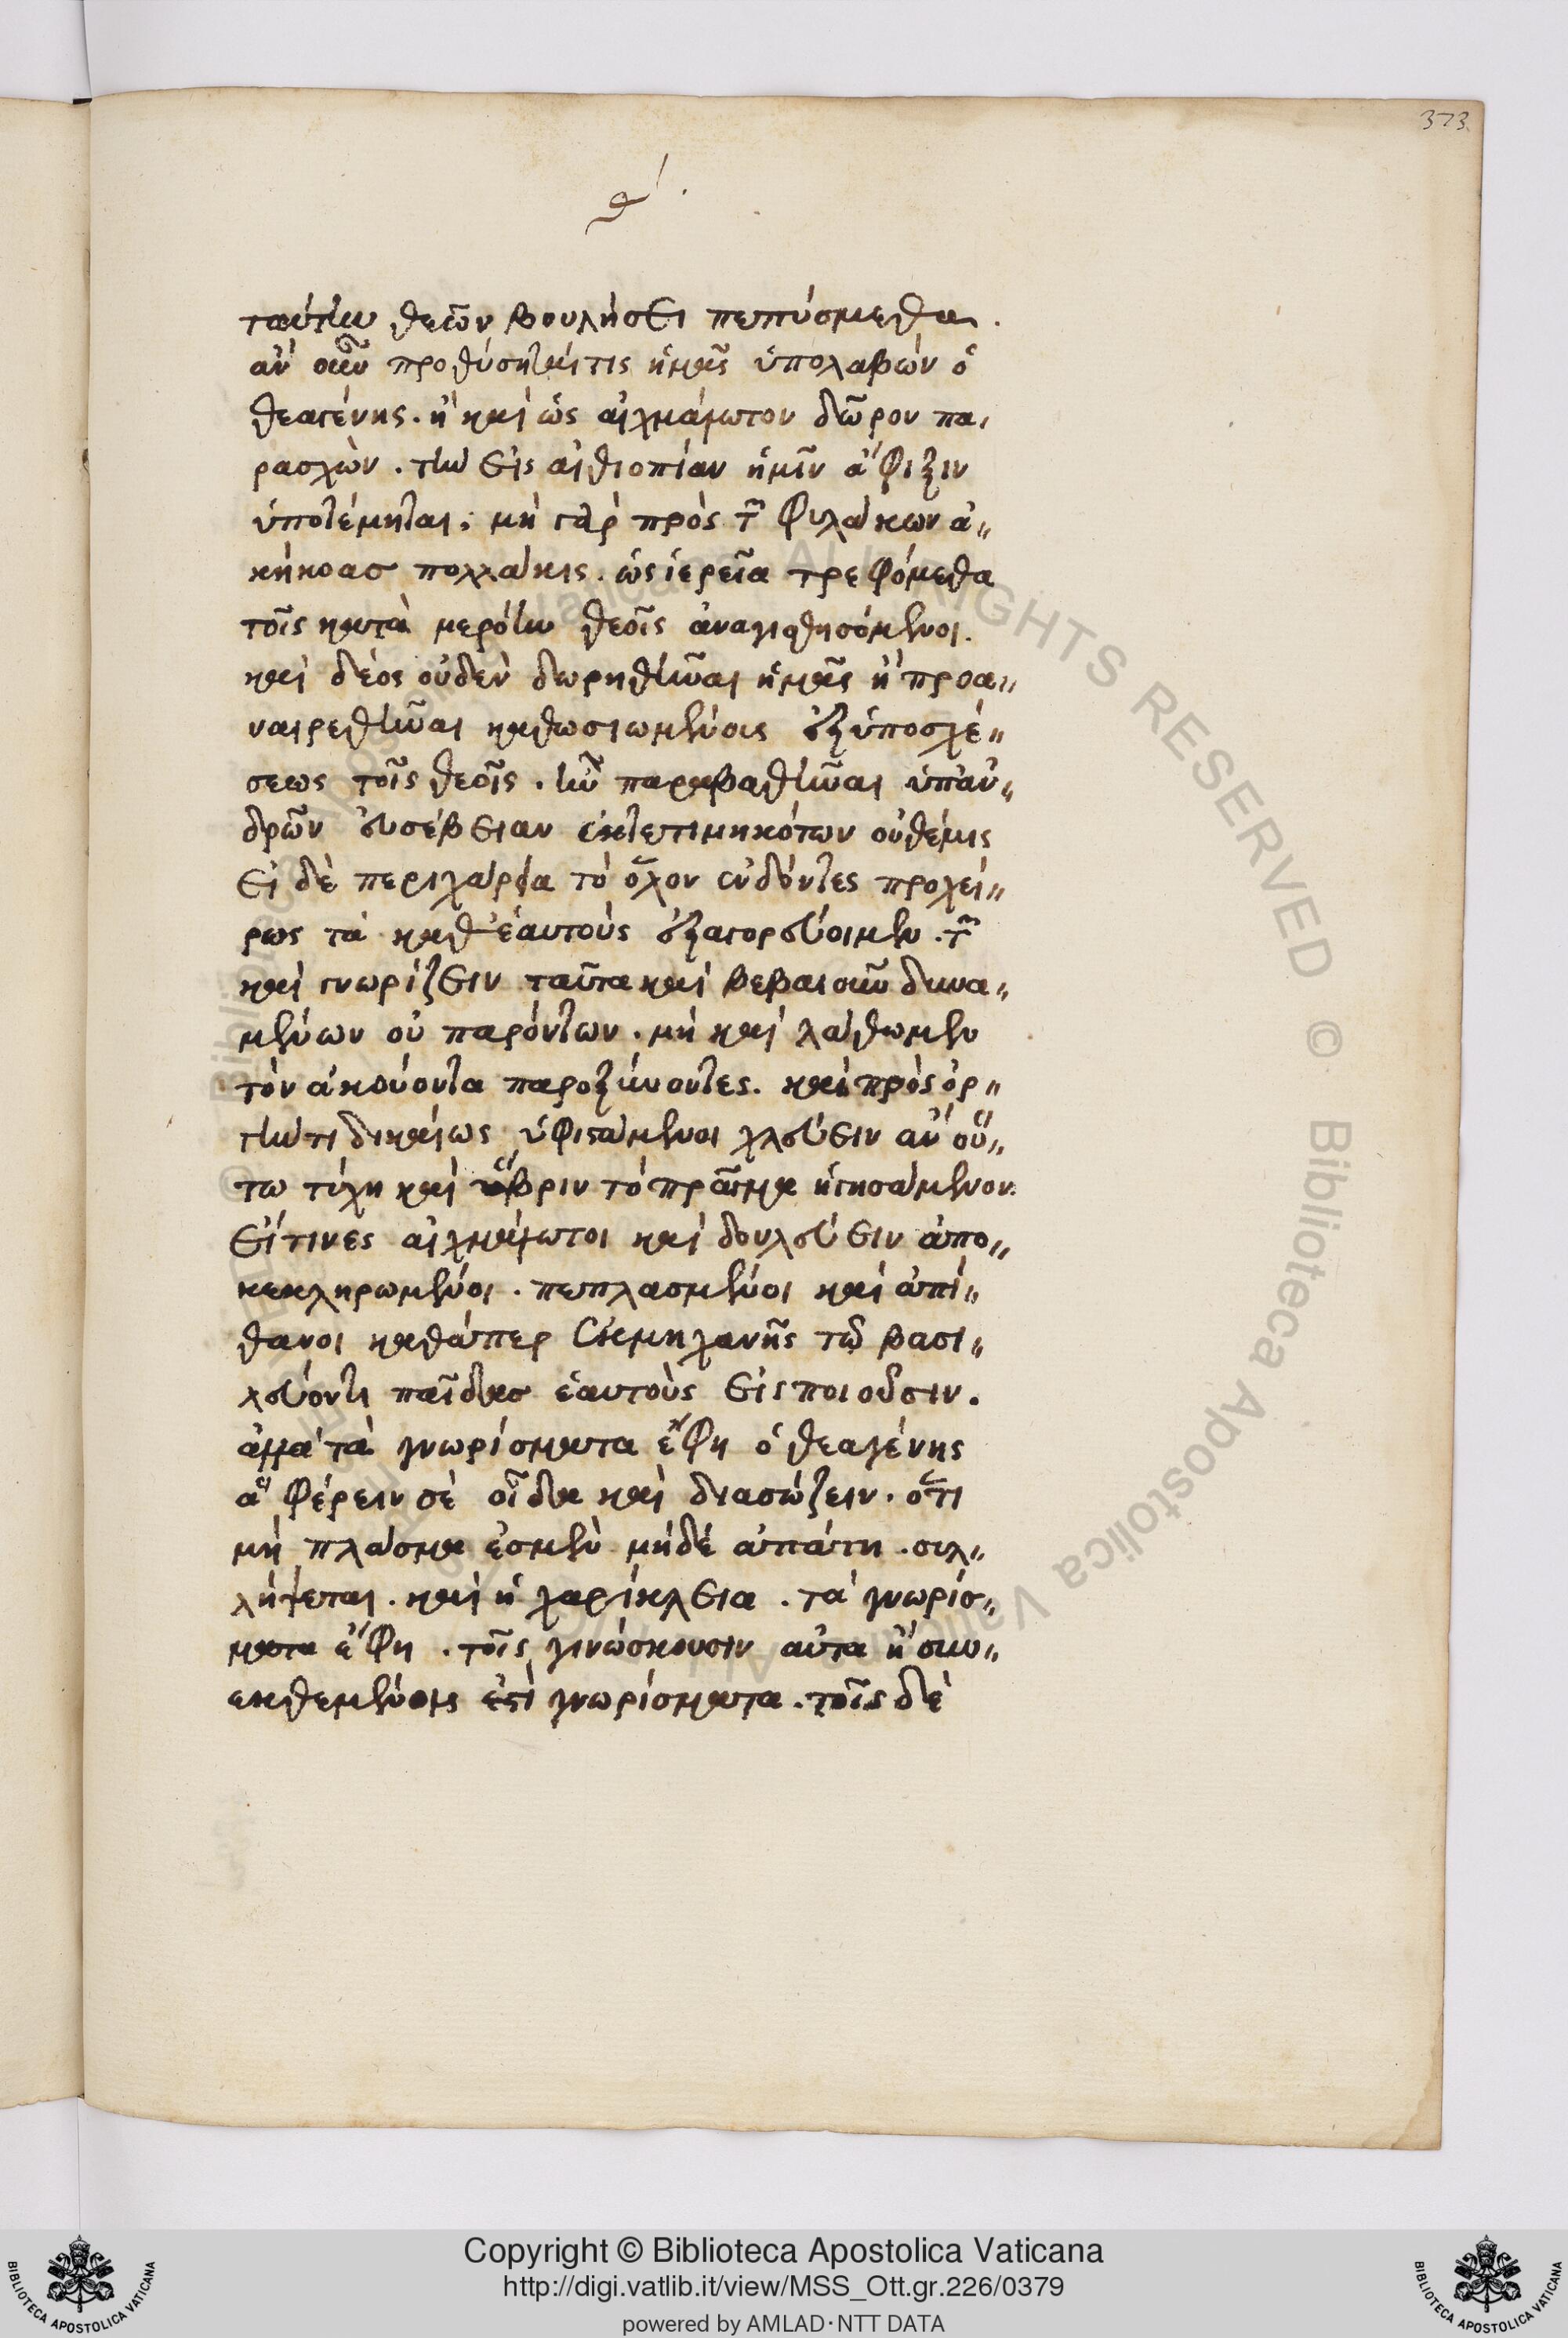 373
θ΄.
ταύτην θεῶν βουλήσει πεπύσμεθα.
ἂν οὖν προθύσηταί τις ἡμᾶς ὑπολαβὼν ὁ
θεαγένης. ἢ καὶ ὡς αἰχμάλωτον δῶρον πα,
ρασχὼν. τὴν εἰς αἰθιοπίαν ἡμῖν ἄφιξιν
ὑποτέμηται; μὴ γὰρ πρὸς τ̃ φυλάκων ἀ,,
κήκοας πολλάκις. ὡς ἱερεῖα τρεφόμεθα
τοῖς κατὰ μερόην θεοῖς ἀναγισθησόμενοι.
καὶ δέος οὐδὲν δωρηθῆναι ἡμᾶς ἢ προα,,
ναιρεθῆναι καθωσιωμένοις ἐξ ὑποσχέ,,
σεως τοῖς θεοῖς. ἣν παραβαθῆναι ὑπ' ἀν,,
δρῶν εὐσέβειαν ἐκτετιμηκότων οὐ θέμις
εἰ δὲ περιχαρεία τὸ ὅλον ἐνδόντες προχεί,,
ρως τὰ καθ' ἑαυτοὺς ἐξαγορεύοιμεν. τ̃
καὶ γνωρίζειν ταῦτα καὶ βεβαιοῦν δυνα,,
μένων οὐ παρόντων. μὴ καὶ λάθωμεν
τὸν ἀκούοντα παροξύνοντες. καὶ πρὸς ὀρ,,
γήν τι δικαίως ὑφιστάμενοι χλεύειν ἂν οὕ,,
τω τύχη καὶ ὕβριν τὸ πρᾶγμα ἡγησάμενον.
εἴ τινες αἰχμάλωτοι καὶ δουλεύειν ἀπο,,
κεκληρωμένοι. πεπλασμένοι καὶ ἀπί,,
θανοι καθάπερ ἐκ μηχανῆς τῷ βασι,,
λεύοντι παῖδας ἑαυτοὺς εἰσποιοῦσιν.
ἀλλὰ τὰ γνωρίσματα ἔφη ὁ θεαγένης
ἃ φέρειν σὲ οἶδα καὶ διασώζειν. ὅτι
μὴ πλάσμα ἐσμὲν μηδὲ ἀπάτη. συλ,,
λήψεται. καὶ ἡ χαρίκλεια. τὰ γνωρίσ,,
ματα ἔφη. τοῖς γινώσκουσιν αὐτὰ ἢ συν,,
εκθεμένοις ἐστὶ γνωρίσματα. τοῖς δὲ
Copyright © Biblioteca Apostolica Vaticana
http://digi.vatlib.it/view/MSS_Ott.gr.226/0379
powered by AMLAD·NTT DATA